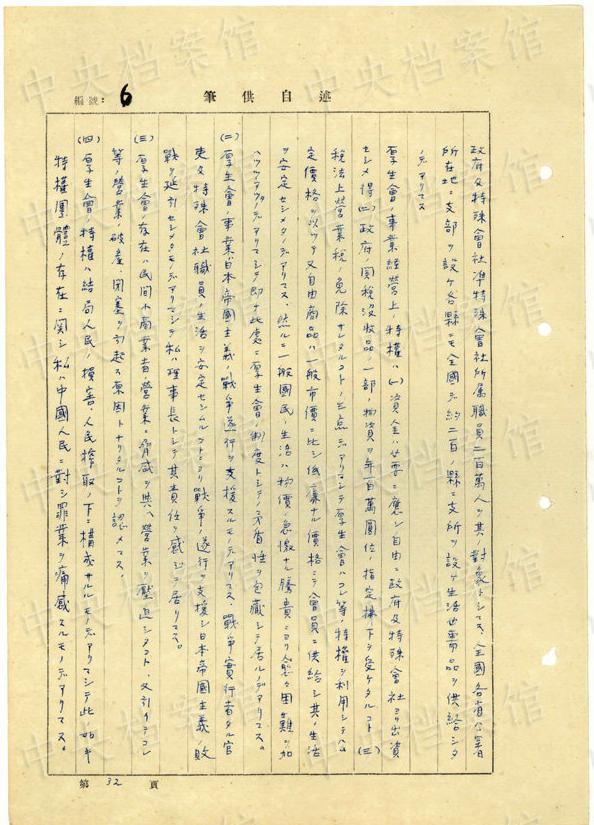 編號：6
述自供筆
政府及特殊會社準特殊會社所属職員二百萬人ヲ其ノ對象トシマス、全國各省公署
所在地ニ支部ヲ設ケ各縣ニモ全國デ約二百ノ縣ニ支所ヲ設ケ生活必需品ヲ供給シタ
ノデアリマス
厚生會ノ事業經営上ノ特權ハ(一)資金ハ必要ニ應ジ自由ニ政府及特殊會社ヨリ出資
セシメ得(二)政府ノ関税没收品ノ一部ノ物資ヲ年百萬圓位ノ指定拂下ヲ受ケタルコト(三)
税法上営業税ノ免除サレタルコトノ三点デアリマシテ厚生會ハコレ等ノ特權ヲ利用シテ公
定價格ヲ以ッテ又自由商品ハ一般市價ニ比シ低廉ナル價格ニテ會員ニ供給シ其ノ生活
ヲ安定セシメタノデアリマス、然ルニ一般國民ノ生活ハ物價ノ急激ナル騰貴ニヨリ愈々困難ヲ加
ヘツツアッタノデアリマシテ即チ此處ニ厚生會ノ制度トシテノ矛盾性ヲ包藏シテ居ルノデアリマス。
(二)厚生會ノ事業ハ日本帝國主義ノ戰爭遂行ヲ支援スルモノデアリマス、戰爭實行者タル官
吏及特殊會社職員ノ生活ヲ安定セシムルコトニヨリ戰爭ノ遂行ヲ支援シ日本帝國主義ノ敗
戰ヲ延引セシメタモノデアリマシテ私ハ理事長トシテ其責任ヲ感ジテ居リマス。
(三)厚生會ノ存在ハ民間小商業者ノ営業ヲ脅威ヲ與ヘ営業ヲ壓迫シタコト、又引イテコレ
等ノ営業ノ破産、閉塞ヲ引起ス原因トナリタルコトヲ認メマス。
(四)厚生會ノ特權ハ結局人民ノ損害、人民搾取ノ下ニ構成サルルモノデアリマシテ此ノ如キ
特權團體ノ存在ニ関シ私ハ中國人民ニ對シ罪業ヲ痛感スルモノデアリマス。
第 32 頁
中央档案馆